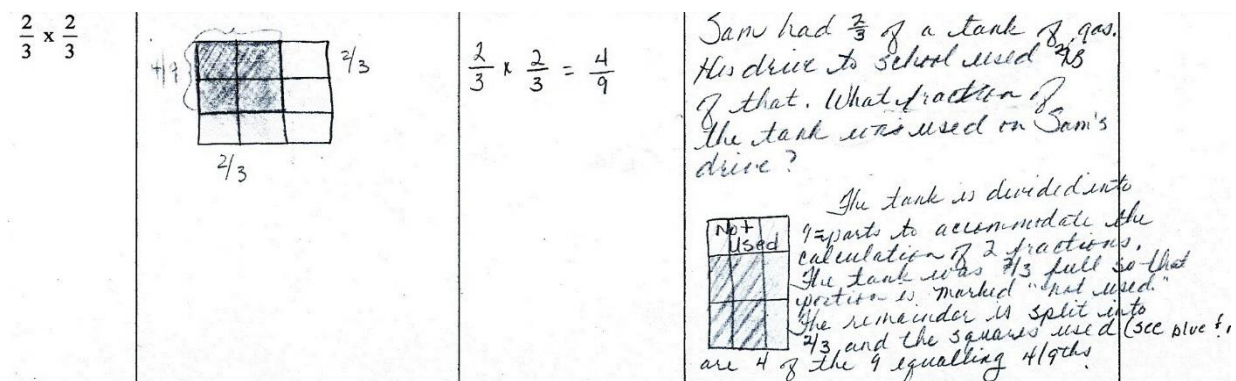 2/3 x 2/3
4/9
2/3
2/3
2/3 x 2/3 = 4/9
Sam had 2/3 of a tank of gas.
His drive to school used 2/3
of that. What fraction of
the tank was used on Sam's
drive?
Not
used
The tank is divided into
9 = parts to accommodate the
calculation of 2 fractions.
The tank was 2/3 full so that
portion is marked "not used."
The remainder is split into
2/3 and the squares used (see blue
are 4 of the 9 equalling 4/9ths.